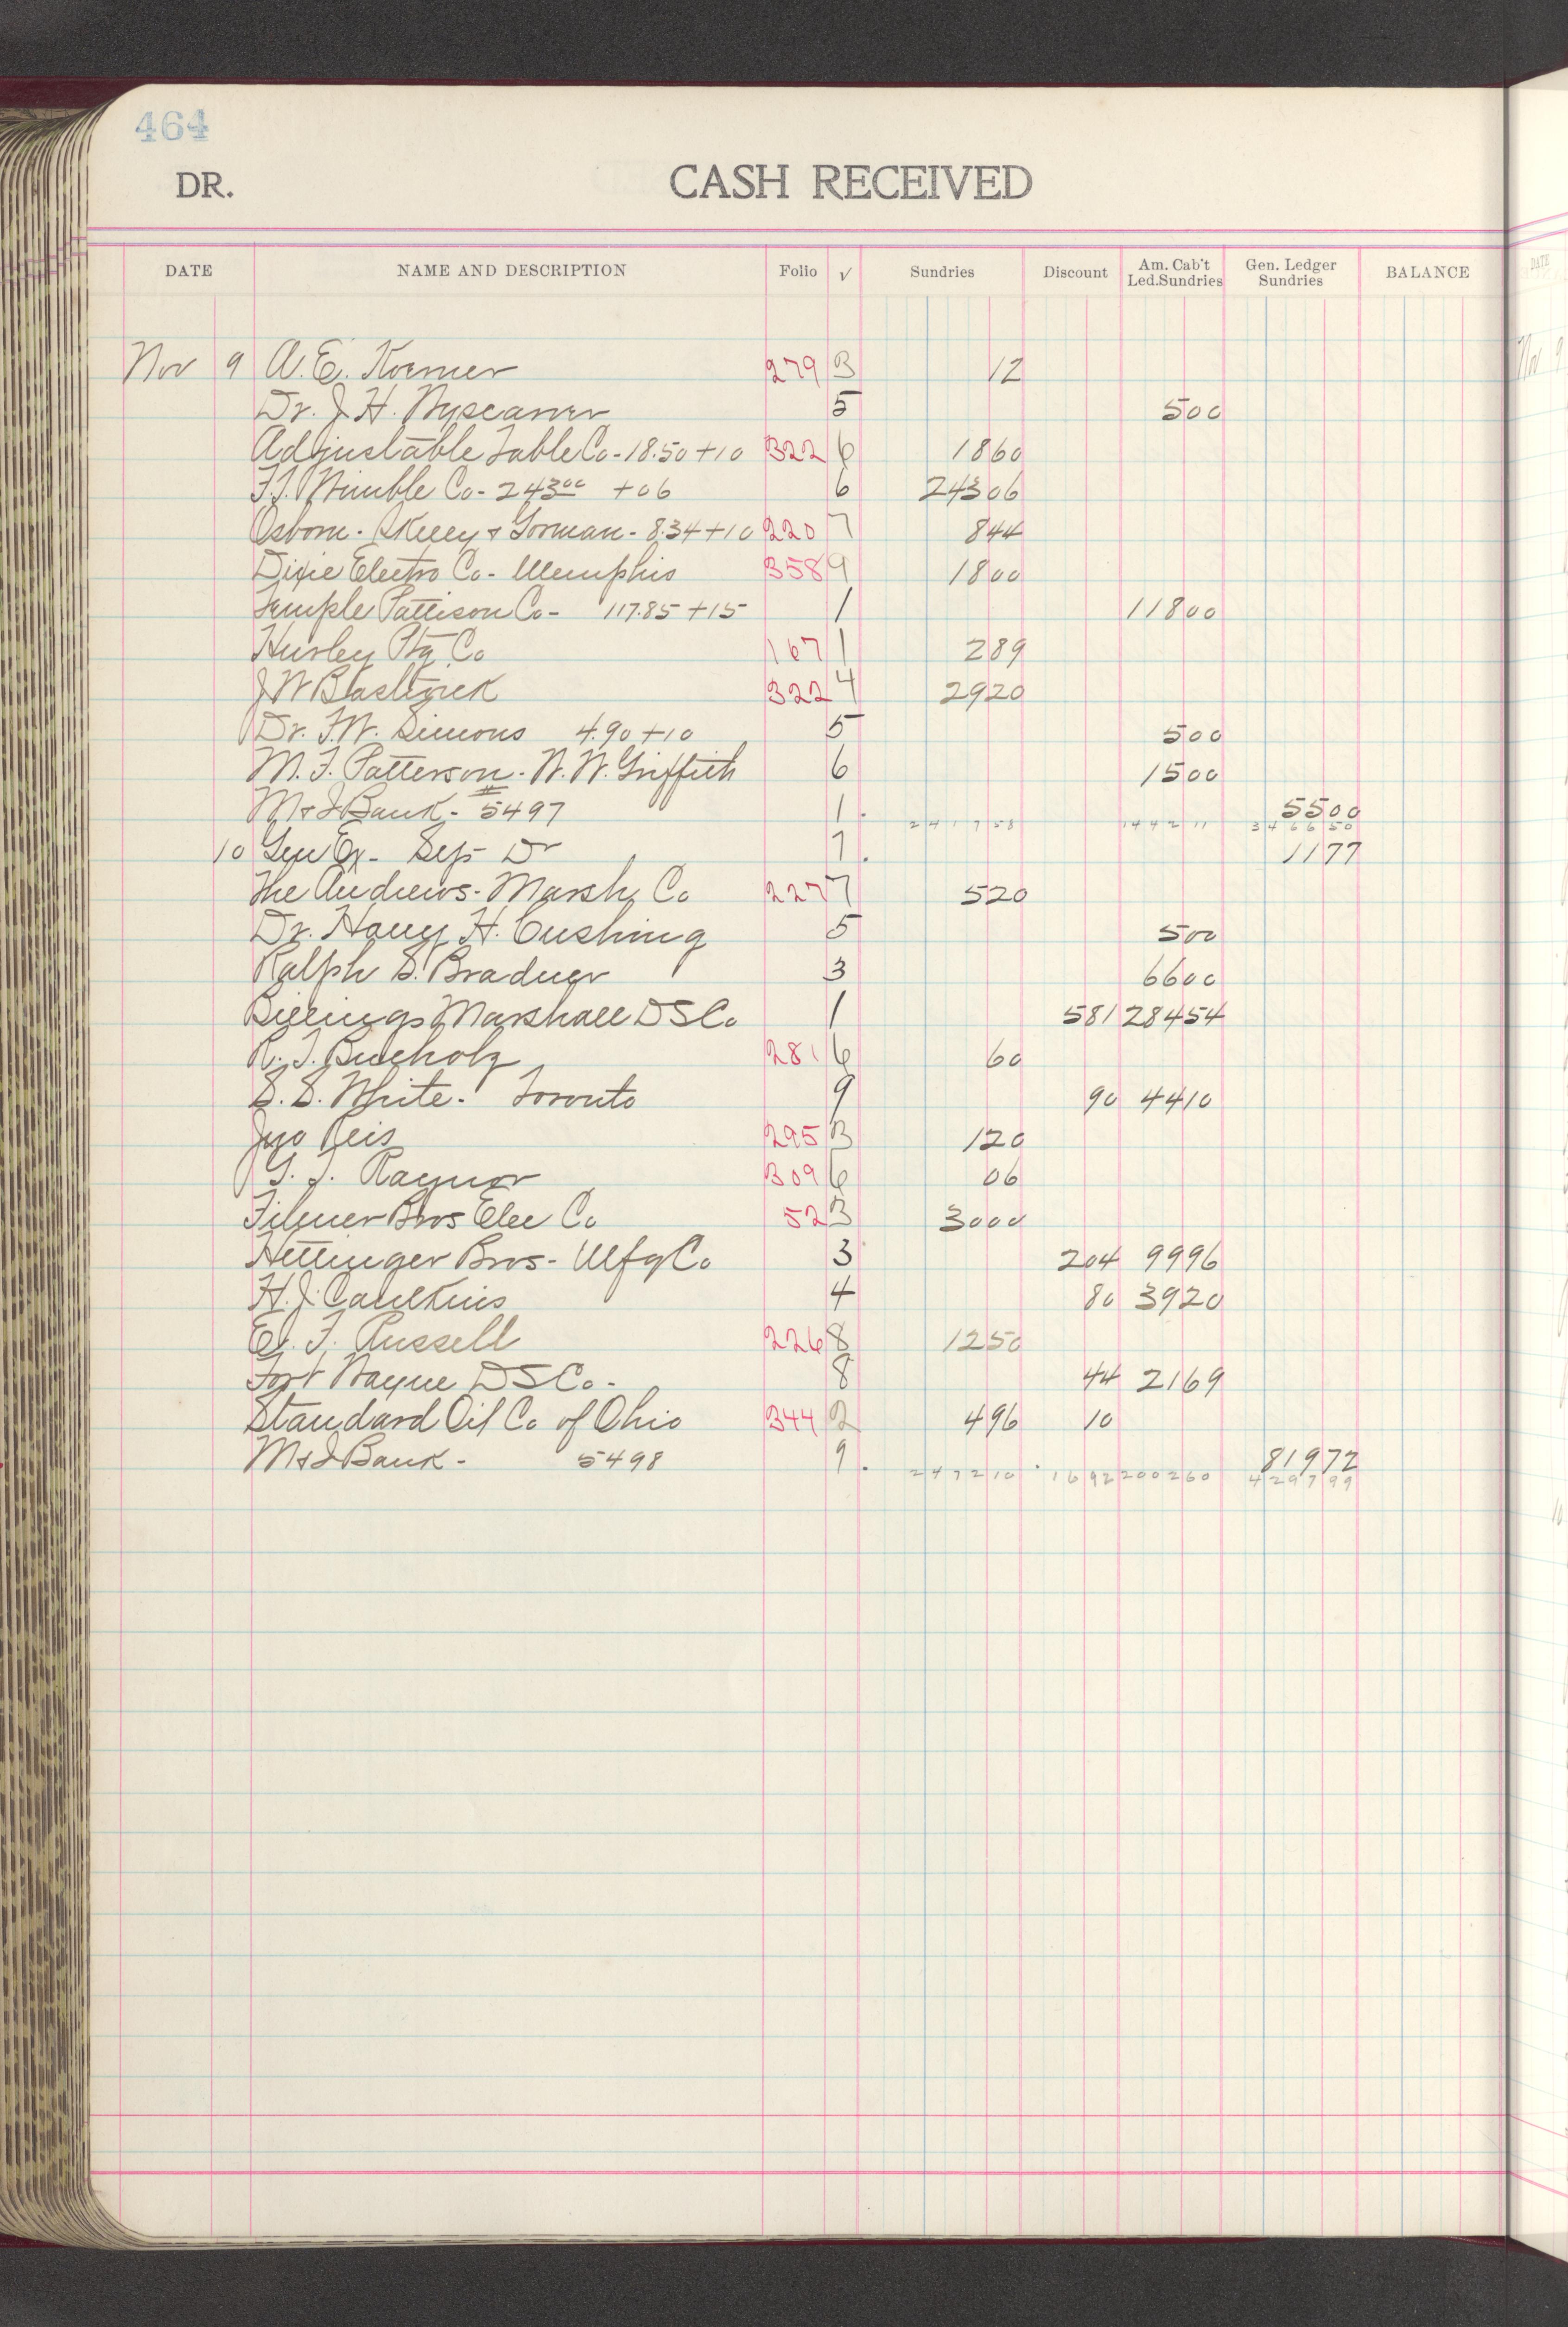 464
DR. CASH RECEIVED
DATE NAME AND DESCRIPTION Folio √ Sundries Discount Am. Cab't Led.Sundries Gen. Ledger Sundries BALANCE
Nov 9 A. E. Koerner 279 3 12
Dr. J. H. 5 500
Adjustable Table Co - 18.50 + 10 322 6 1860
Co - 243 00 + 06 6 24306
Osborn - Skelly & Gorman - 8.34 + 10 220 7 844
Dixie Electro Co - Memphis 358 9 1800
Temple Pattison Co - 117.85 + 15 1 11800
Hurley Ptg Co 167 1 289
J W 322 4 2920
Dr. F. W. Simons 4.90 + 10 5 500
M. F. Patterson - W. W. Griffith 6 1500
M & J Bank - # 5497 1. 5500
241758 144211 346650
10 Gen Ex - Dr 7. 1177
The Andrews - Marsh Co 227 7 520
Dr. Harry H. Cushing 5 500
Ralph S. Bradner 3 6600
Billings Marshall D S Co 1 581 28454
R. J. Bucholz 281 6 60
S. S. White - Toronto 9 90 4410
Jno Reis 295 3 120
Raynor 309 6 06
Filmer Bros Elec Co 52 3 3000
Hettinger Bros - Mfg Co 3 204 9996
H. J. Caulkins 4 80 3920
Russell 226 8 1250
Fort Wayne D S Co - 8 44 2169
Standard Oil Co of Ohio 344 2 496 10
M & J Bank - 5498 9. 81972
247210 1692 200260 429799
DATE
Nov 9
10